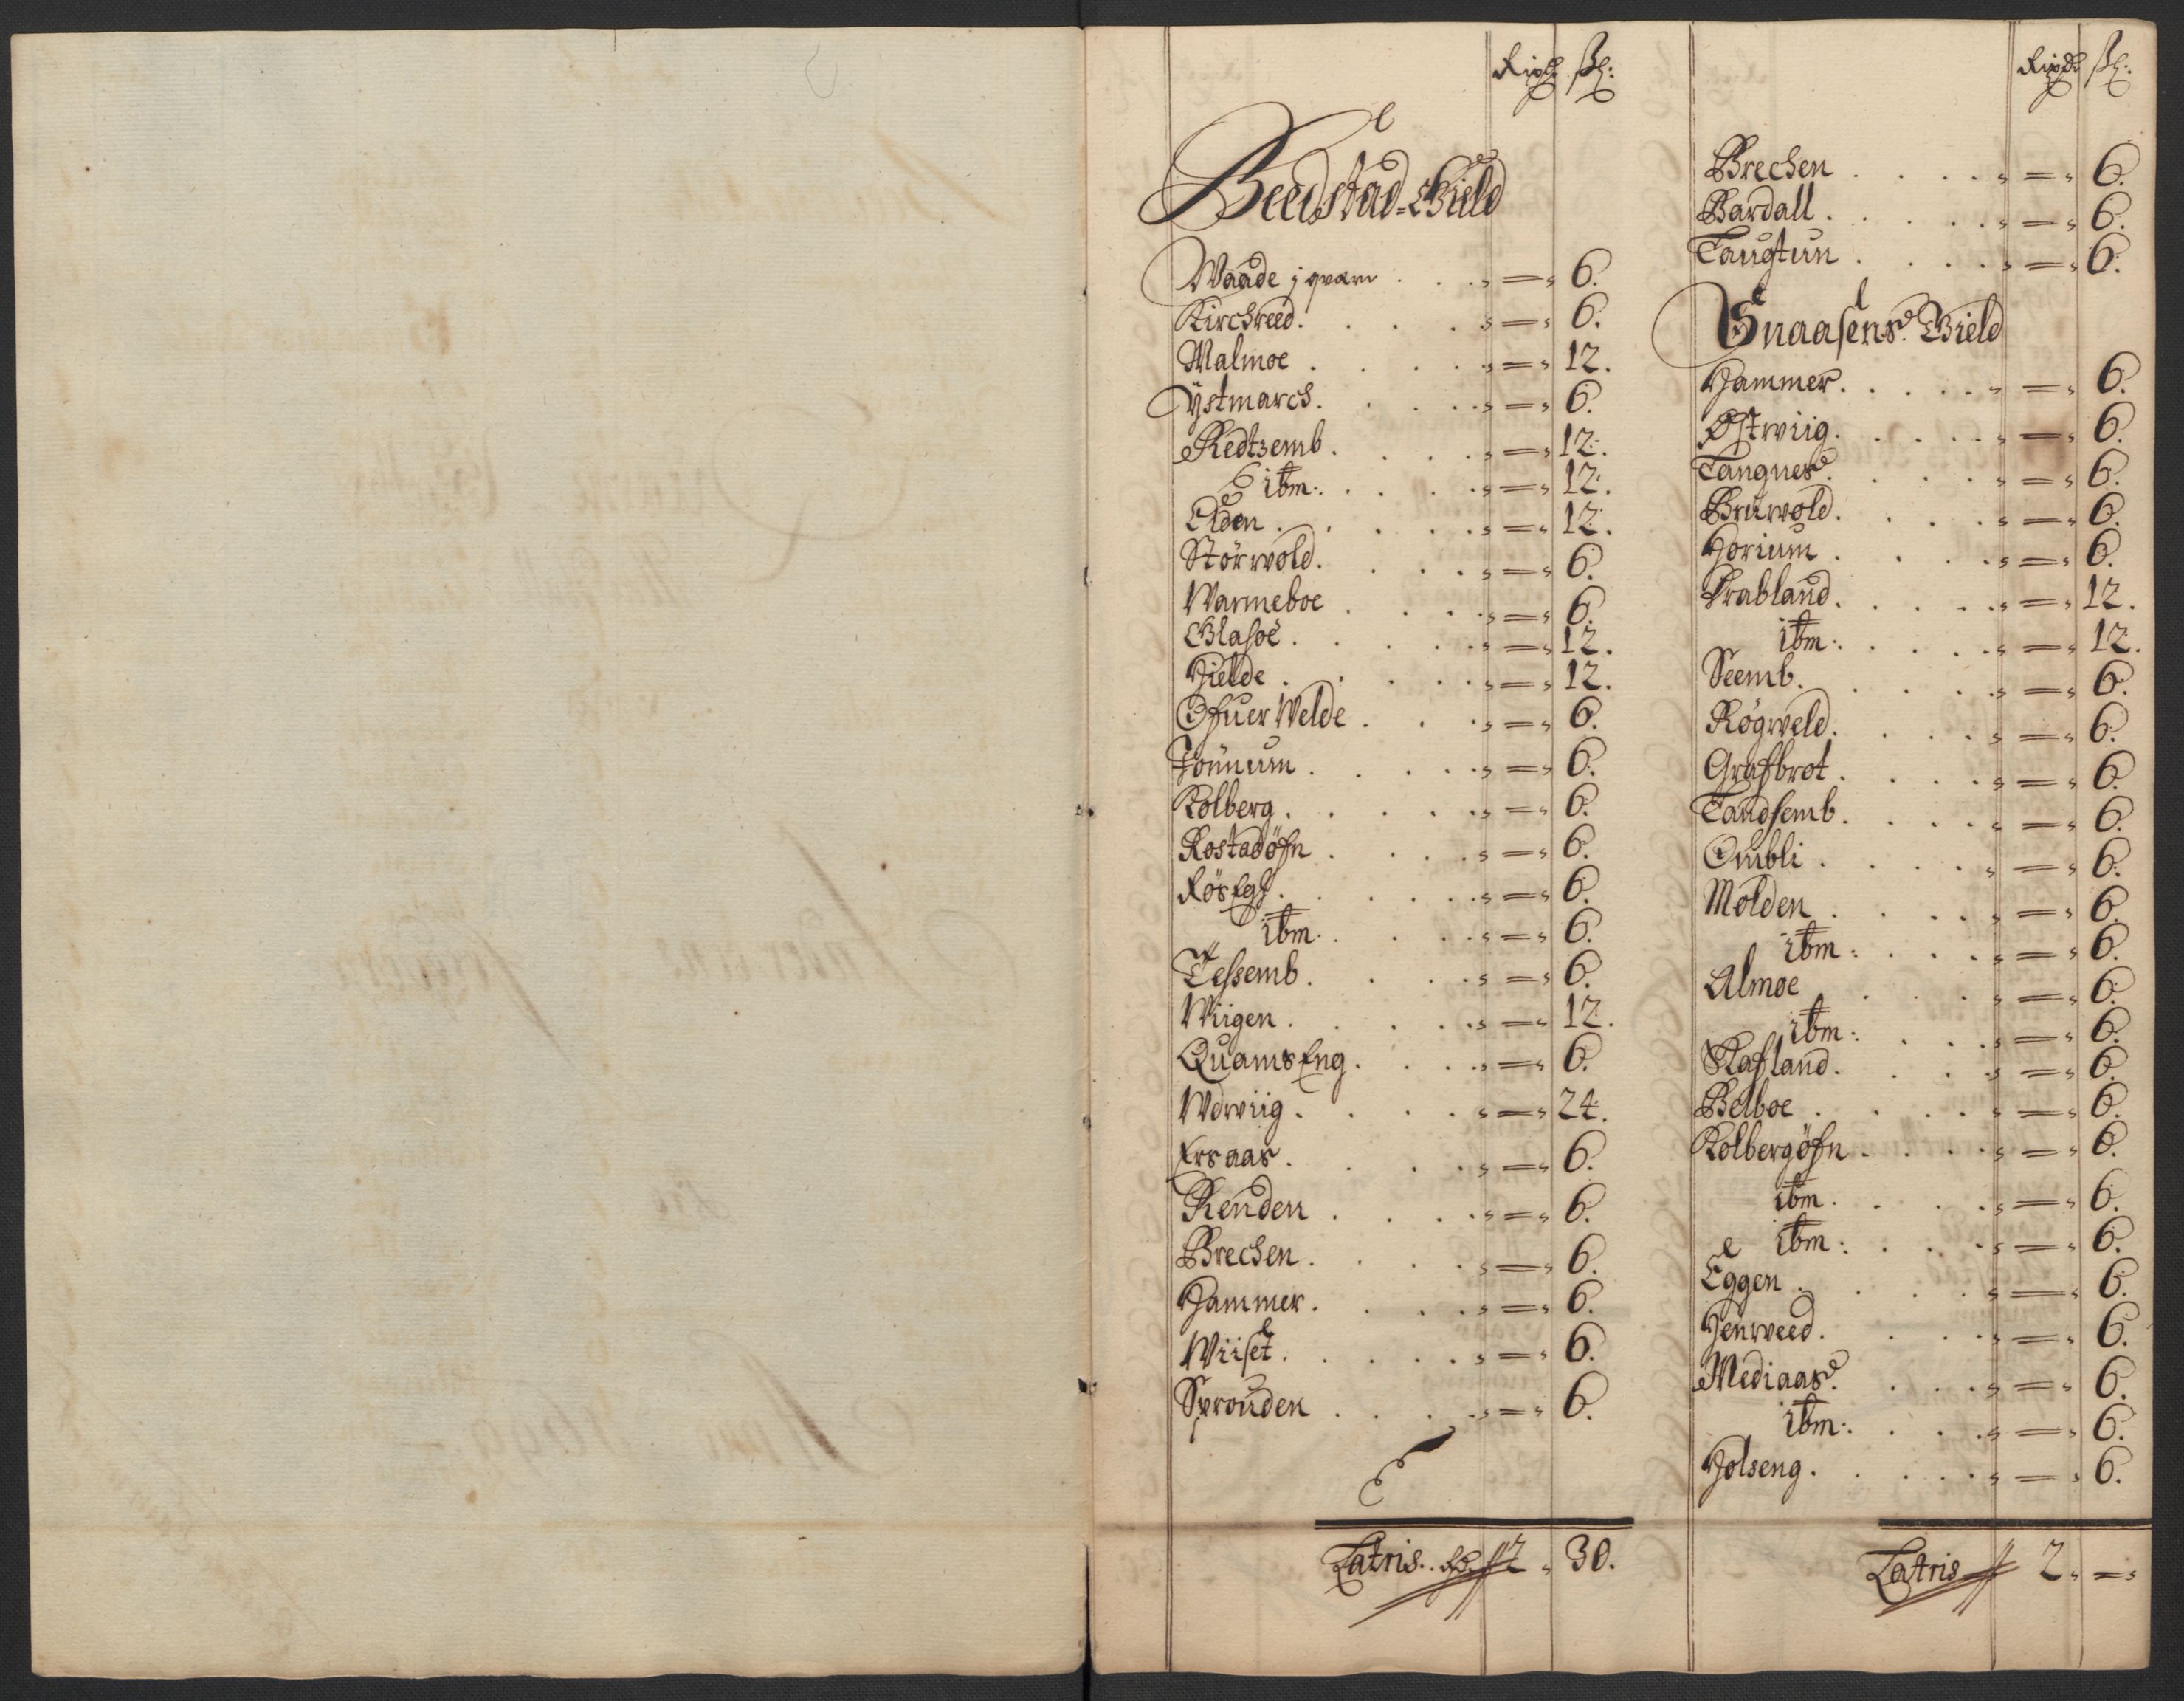 Rixd ßl:
Beedstad-Gield
Waade j qvarn . . . „ = „ 6.
Kirchreed. . . . „ = „ 6.
Malmoe . . . . „ = „ 12.
Ystmarch. . . . „ = „ 6.
Redtzemb . . . . „ = „ 12.
ibm: . . . . „ = „ 12.
Elden . . . . „ = „ 12.
Störwold. . . . „ = „ 6.
Warmeboe . . . . „ = „ 6.
Glasoe . . . . „ = „ 12.
Hielde . . . . „ = „ 12.
Ofuer Welde . . . „ = „ 6.
Tönnum . . . . „ = „ 6.
Kolberg . . . . „ = „ 6.
Rostadöfn . . . . „ = „ 6.
„ = „ 6.
ibm. . . . . „ = „ 6.
Tessemb. . . . „ = „ 6.
Wiigen . . . . „ = „ 12.
Quams Eng . . . . „ = „ 6.
Wdwiig . . . . „ = „ 24.
Ersaas . . . . „ = „ 6.
Renden . . . . „ = „ 6.
Brechen . . . . „ = „ 6.
Hammer . . . . „ = „ 6.
Wiiset . . . . „ = „ 6.
Sprouden . . . . „ = „ 6.
Latris . . 2 „ 30.
Rixd ßl:
Brechen . . . . „ = „ 6.
Bardall . . . . „ = „ 6.
Taugtun . . . . „ = „ 6.
Snaasens Gield
Hammer . . . . „ = „ 6.
Østwiig . . . . „ = „ 6.
Tangnes . . . . „ = „ 6.
Bruwold . . . . „ = „ 6.
Horium . . . . „ = „ 6.
Prabland . . . . „ = „ 12.
ibm: . . . . „ = „ 12.
Seemb. . . . „ = „ 6.
Rögweld. . . . „ = „ 6.
Grafbrot . . . . „ = „ 6.
Tandsemb . . . . „ = „ 6.
Ombli . . . . „ = „ 6.
Molden . . . . „ = „ 6.
ibm: . . . . „ = „ 6.
Almoe . . . . „ = „ 6.
ibm: . . . . „ = „ 6.
Kafland . . . . „ = „ 6.
Belboe . . . . „ = „ 6.
Kolbergöfn . . . . „ = „ 6.
ibm . . . . „ = „ 6.
ibm: . . . . „ = „ 6.
Eggen . . . . „ = „ 6.
Henweed . . . . „ = „ 6.
Mediaas . . . . „ = „ 6.
ibm: . . . . „ = „ 6.
Holseng . . . . „ = „ 6.
Latris 2 „ = „